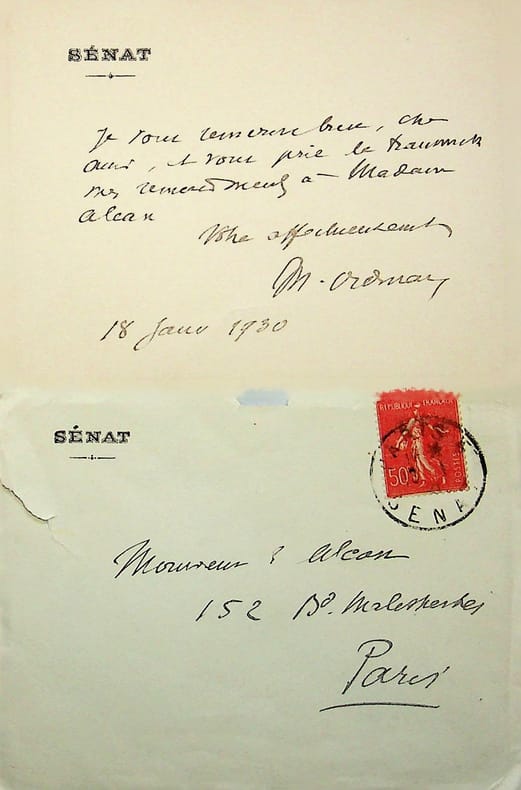 SÉNAT
Je vous remercie bien, cher
ami, et vous prie de transmettre
mes remerciements à Madame
Alcan
Votre affectueusement
M. Ordinaire
18 Janv 1930
SÉNAT
REPUBLIQUE FRANÇAISE
50
POSTES
PARIS
SENAT
Monsieur E Alcan
152 Bd. Malesherbes
Paris